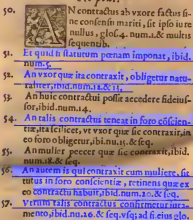 50. AN contractus ab vxore factus si-
ne consensu mariti, sit ipso iure
nullus, glos.4. num.1.& multis
sequentib.
51. Et quid si statutum pœnam imponat, ibid.
num.5.
52. An vxor quæ ita contraxit, obligetur natu-
raliter, ibid.num.12.& 13.
53. An huic contractui possit accedere fideius-
sor, ibid.num.14.
54. An talis contractus teneat in foro cõscien-
tiæ, ita scilicet, vt vxor quæ sic contraxit, in
eo foro obligetur, ibid.nu.15.& seq.
55. An mulier peccet quæ sic contraxit, ibid.
num.18.& seq.
56. An autem is qui contraxit cum muliere, sit
tutus in foro conscientiæ, retinens quæ ex
eo contractu habuit, ibid.num.20.& seq.
57. Vtrum talis contractus confirmetur iura-
mento, ibid.nu.26.& seq. vsq; ad fi. eius glo.